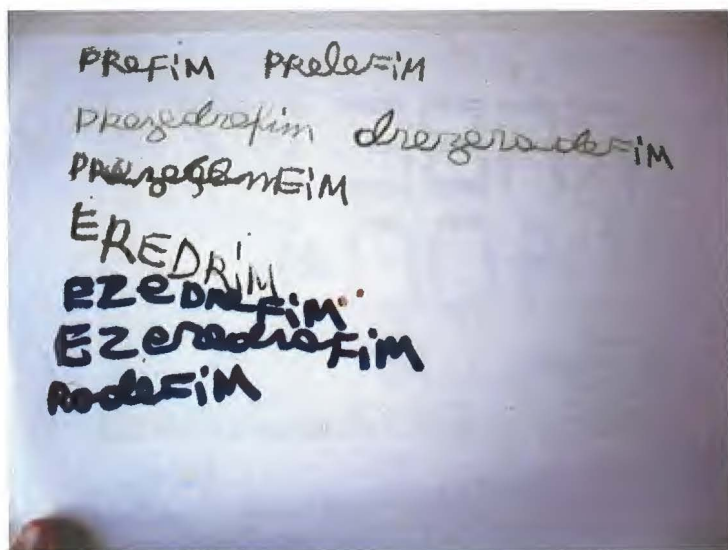 PREFiM PRELEFiM
prezedrefim drezeraudeFiM
EREDRiM
EZEDREFiM
EZEREDREFiM
RODEFiM